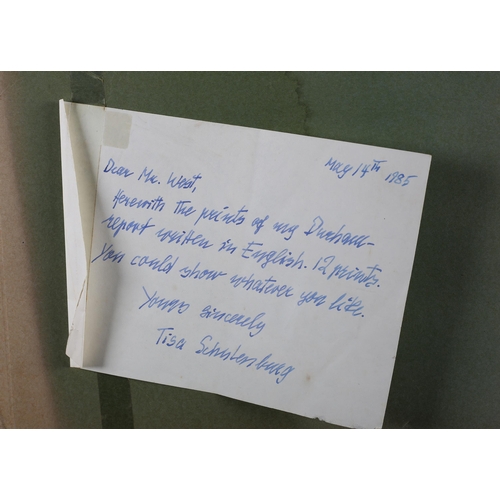 May 14TH 1985
Dear Mr. West,
Herewith the prints of my Durham-
report written in English. 12 prints.
You could show whatever you like.
Yours sincerely
Tisa Schulenburg